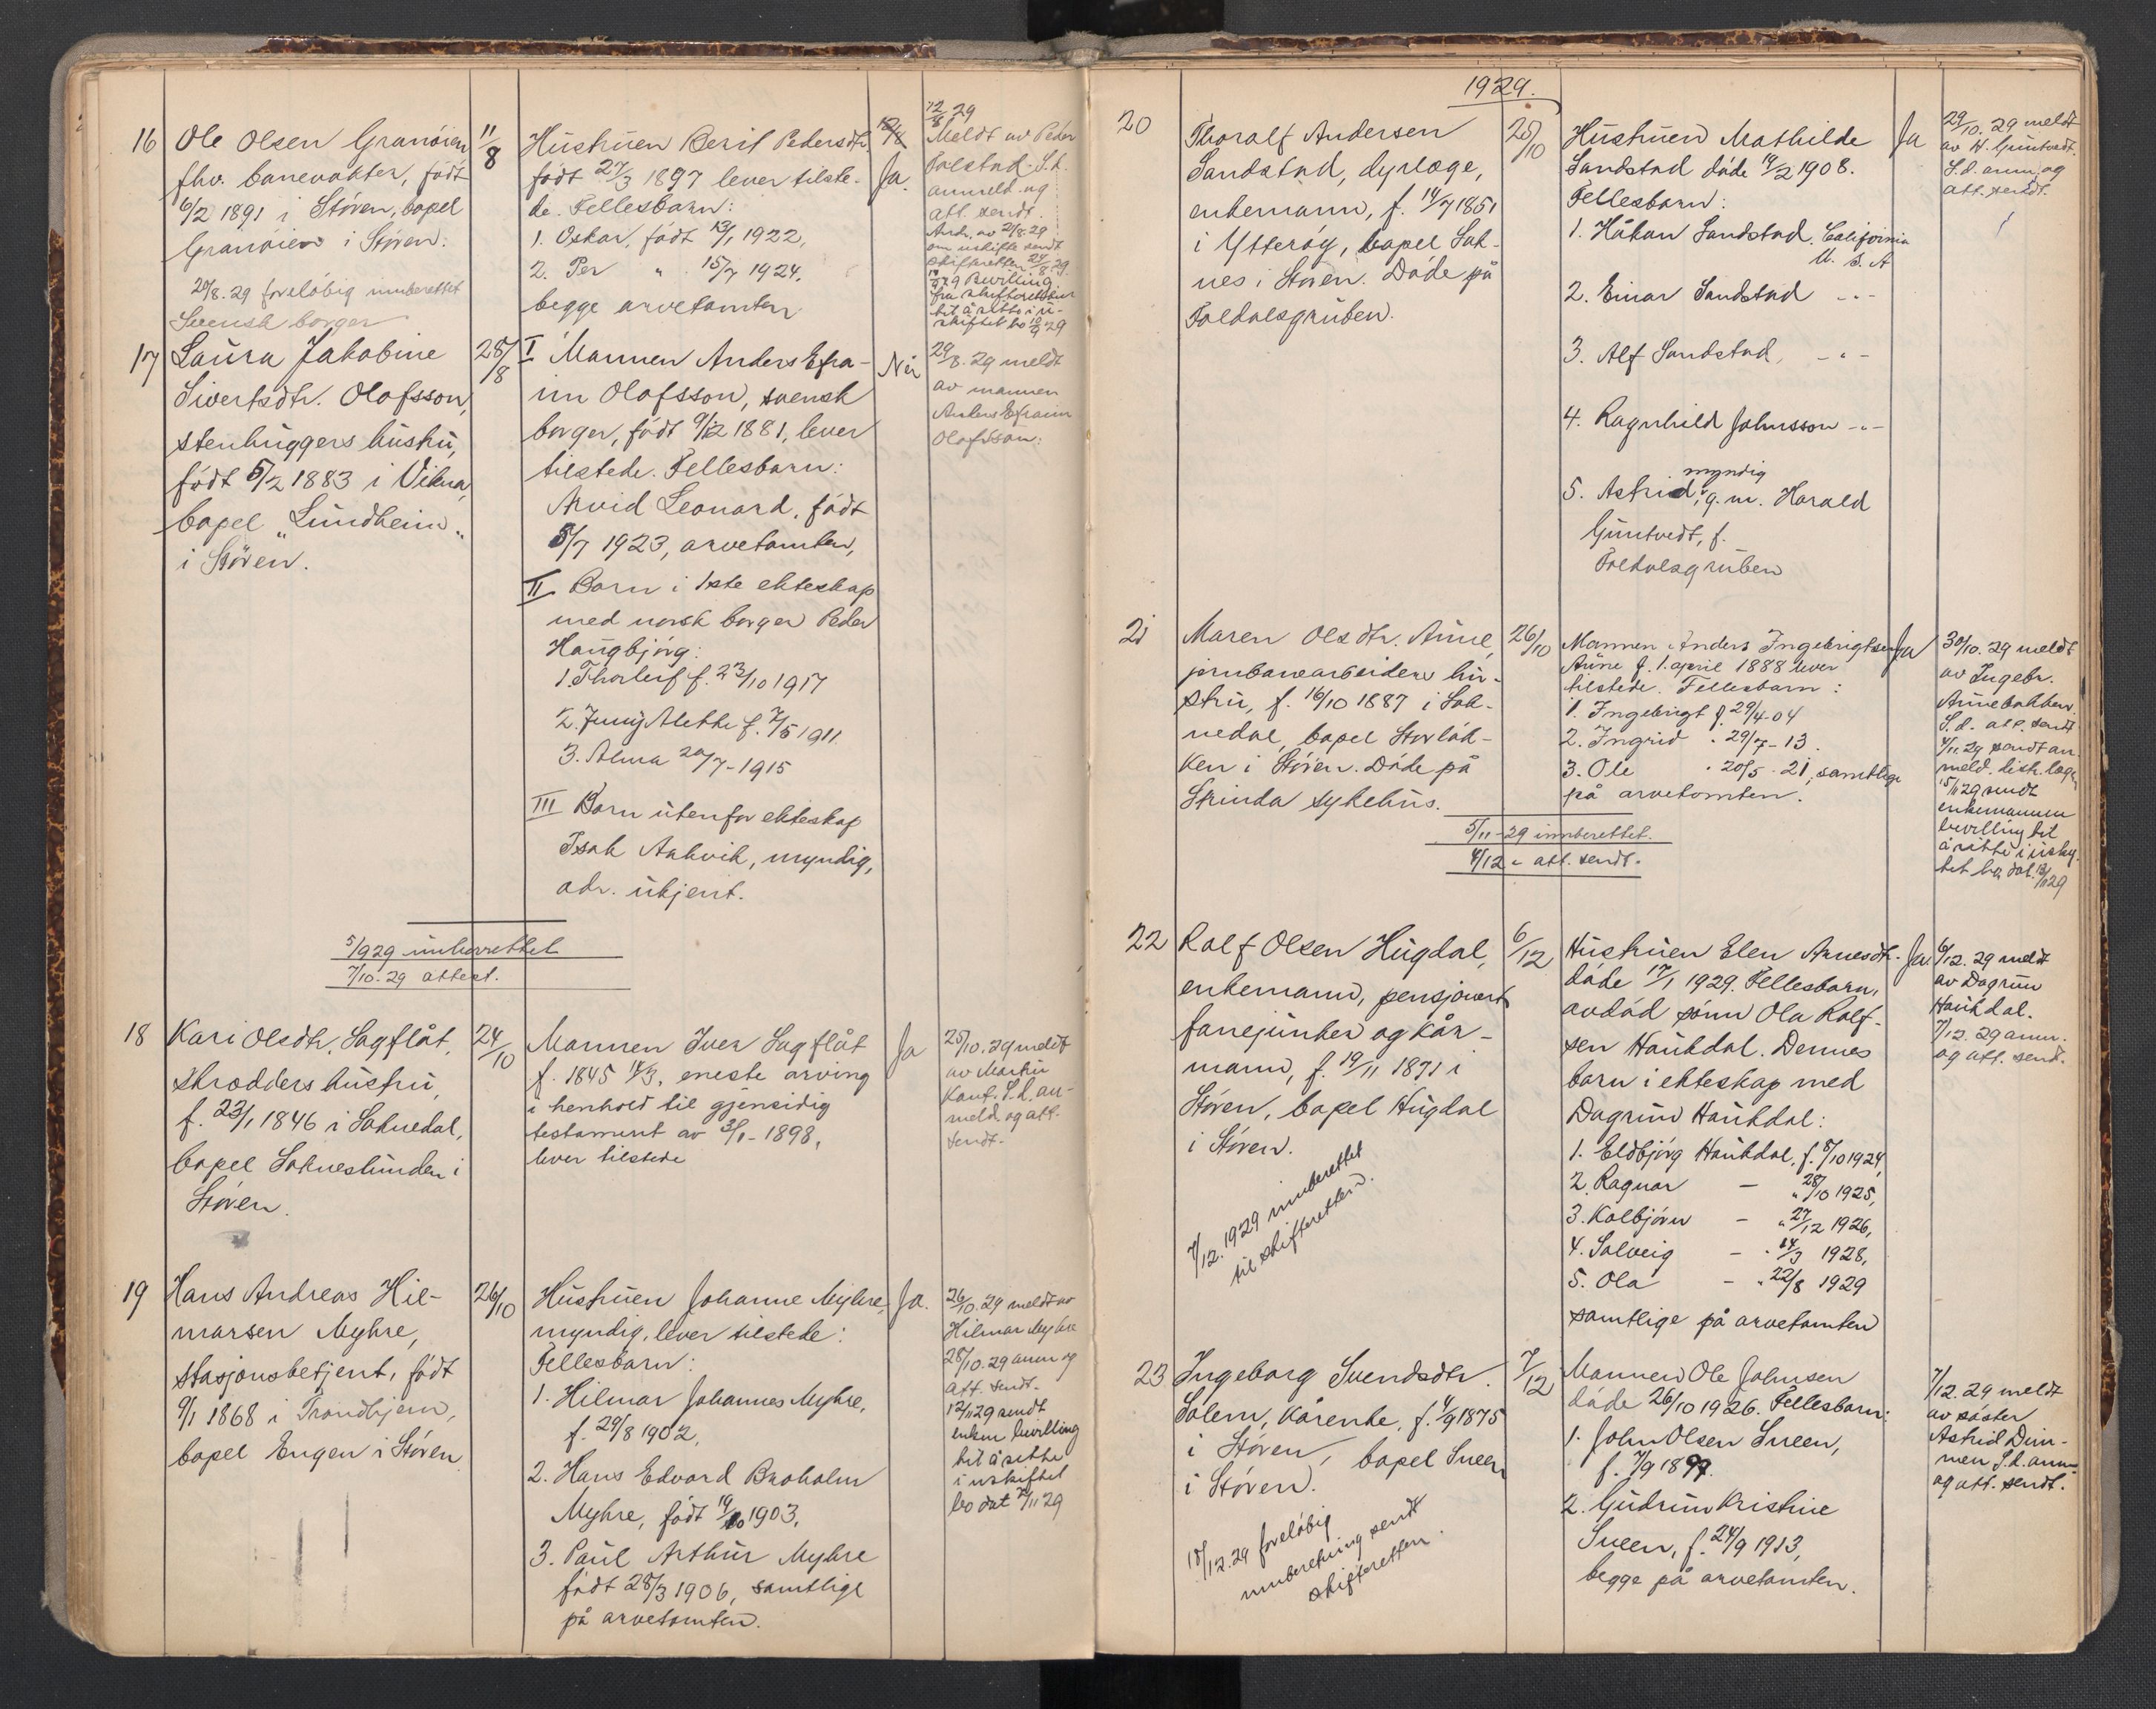 16
Ole Olsen Granöien
fhv. banevakter, född
6/2 1891 i Støren, bopel
Granøien i Støren.
20/8.29 foreløbig innberettet
Svensk borger
11/8
Hustruen Berit Pedersdtr.
født 27/3 1897 lever tilste-
de. Fellesbarn:
1. Oskar, født 13/1 1922,
2. Per " 15/7 1924,
begge arvetomten
Ja.
12/8 29
Meldt av Peder
Folstad. S.d.
anmeld. og
att. sendt.
om uskifte sendt
skifteretten 24/8.29.
Bevilling
fra skifteretten
til å sitte i u-
skiftet bo 10/9 29
17
Laura Jakobine
Sivertsdtr. Olofsson,
stenhuggers hustru,
født 5/2 1883 i Vikna,
bopel "Lundheim"
i Støren.
28/8
I Mannen Anders Efra-
im Olofsson, svensk
borger, født 9/12 1881, lever
tilstede. Fellesbarn:
Arvid Leonard, født
5/7 1923, arvetomten,
II Barn i 1ste ekteskap
med norsk borger Peder
Haugbjørg:
1. Thorleif f. 23/10 1917
2. Jenny Alette f. 7/5 1911
3. Alma 20/7-1915
III Barn utenfor ekteskap
Isak Aakvik, myndig,
adr. ukjent.
Nei
29/8.29 meldt
av mannen
Anders Efraim
Olofsson.
5/9 29 innberettet
7/10.29 attest.
18
Kari Olsdtr. Sagflåt,
skredders hustru,
f. 23/1 1846 i Soknedal,
bopel Sokneslunden i
Støren.
24/10
Mannen Iver Sagflåt
f. 1845 17/3, eneste arving
i henhold til gjensidig
testament av 3/1-1898,
lever tilstede
Ja
25/10.29 meldt
av Martin
Kant. S.d. an-
meld. og att.
sendt.
19
Hans Andreas Hil-
marsen Myhre,
stasjonsbetjent, født
9/1 1868 i Trondhjem,
bopel Engen i Støren
26/10
Hustruen Johanne Myhre,
myndig, lever tilstede:
Fellesbarn:
1. Hilmar Johannes Myhre,
f. 29/8 1902,
2. Hans Edvard Broholm
Myhre, født 19/10 1903,
3. Paul Arthur Myhre
født 28/3 1906, samtlige
på arvetomten.
Ja.
26/10.29 meldt av
Hilmar Myhre
28/10.29 anm og
att. sendt.
12/11 29 sendt
enken bevilling
til å sitte
i uskiftet
bo dat 7/11 29
1929.
20
Thoralf Andersen
Sandstad, dyrlæge,
enkemann, f. 14/7 1851
i Ytterøy, bopel Sok-
nes i Støren. Døde på
Foldalsgruben.
25/10
Hustruen Mathilde
Sandstad døde 19/2 1908.
Fellesbarn:
1. Håkon Sandstad, California
U.S.A
2. Einar Sandstad - " -
3. Alf Sandstad, - " -
4. Ragnhild Johnsson - " -
myndig
5. Astrid, g.m. Harald
Guntvedt, f.
Foldalsgruben
Ja
29/10.29 meldt
av H. Guntvedt.
S.d. anm. og
att. sendt.
21
Maren Olsdtr. Aune,
jernbanearbeiders hu-
stru, f. 16/10 1887 i Sok-
nedal, bopel Storløk-
ken i Støren. Døde på
Strinda sykehus.
26/10
Mannen Anders Ingebrigtsen
Aune f. 1. april 1888 lever
tilstede. Fellesbarn:
1. Ingebrigt f. 29/4-04
2. Ingrid " 29/7-13.
3. Ole " 20/5-21, samtlige
på arvetomten.
Ja
30/10.29 meldt
av Ingebr.
Aunebakken.
S.d. att. sendt
4/11.29 sendt an-
meld. distr.læge
15/11 29 sendt
enkemannen
bevilling til
å sitte i uskif-
tet bo dat. 13/11 29
5/11-29 innberettet.
4/12 " att. sendt.
22
Rolf Olsen Hugdal,
enkemann, pensjonert
fanejunker og kår-
mann, f. 19/11 1871 i
Støren, bopel Hugdal
i Støren.
7/12.1929 innberettet
til skifteretten.
6/12
Hustruen Elen Arnesdtr.
døde 17/1 1929. Fellesbarn,
avdød sønn Ola Rolf-
sen Haukdal. Dennes
barn i ekteskap med
Dagrun Haukdal:
1. Eldbjørg Haukdal, f. 8/10 1924,
2. Ragnar - " 28/10 1925,
3. Kolbjørn - " 27/12 1926,
4. Solveig - " 14/3 1928,
5. Ola - " 22/8 1929
samtlige på arvetomten
Ja.
6/12.29 meldt
av Dagrun
Haukdal.
7/12.29 anm.
og att. sendt.
23
Ingeborg Svendsdtr.
Solem, kårenke, f. 4/9 1875
i Støren, bopel Sveen
i Støren.
18/12.29 foreløbig
innberetning sendt
skifteretten.
7/12
Mannen Ole Johnsen
døde 26/10 1926. Fellesbarn:
1. John Olsen Sveen,
f. 7/9 1897.
2. Gudrun Kristine
Sveen, f. 24/9 1913,
begge på arvetomten.
7/12.29 meldt
av søster
Astrid Dun-
men S.d. anm-
og att. sendt.